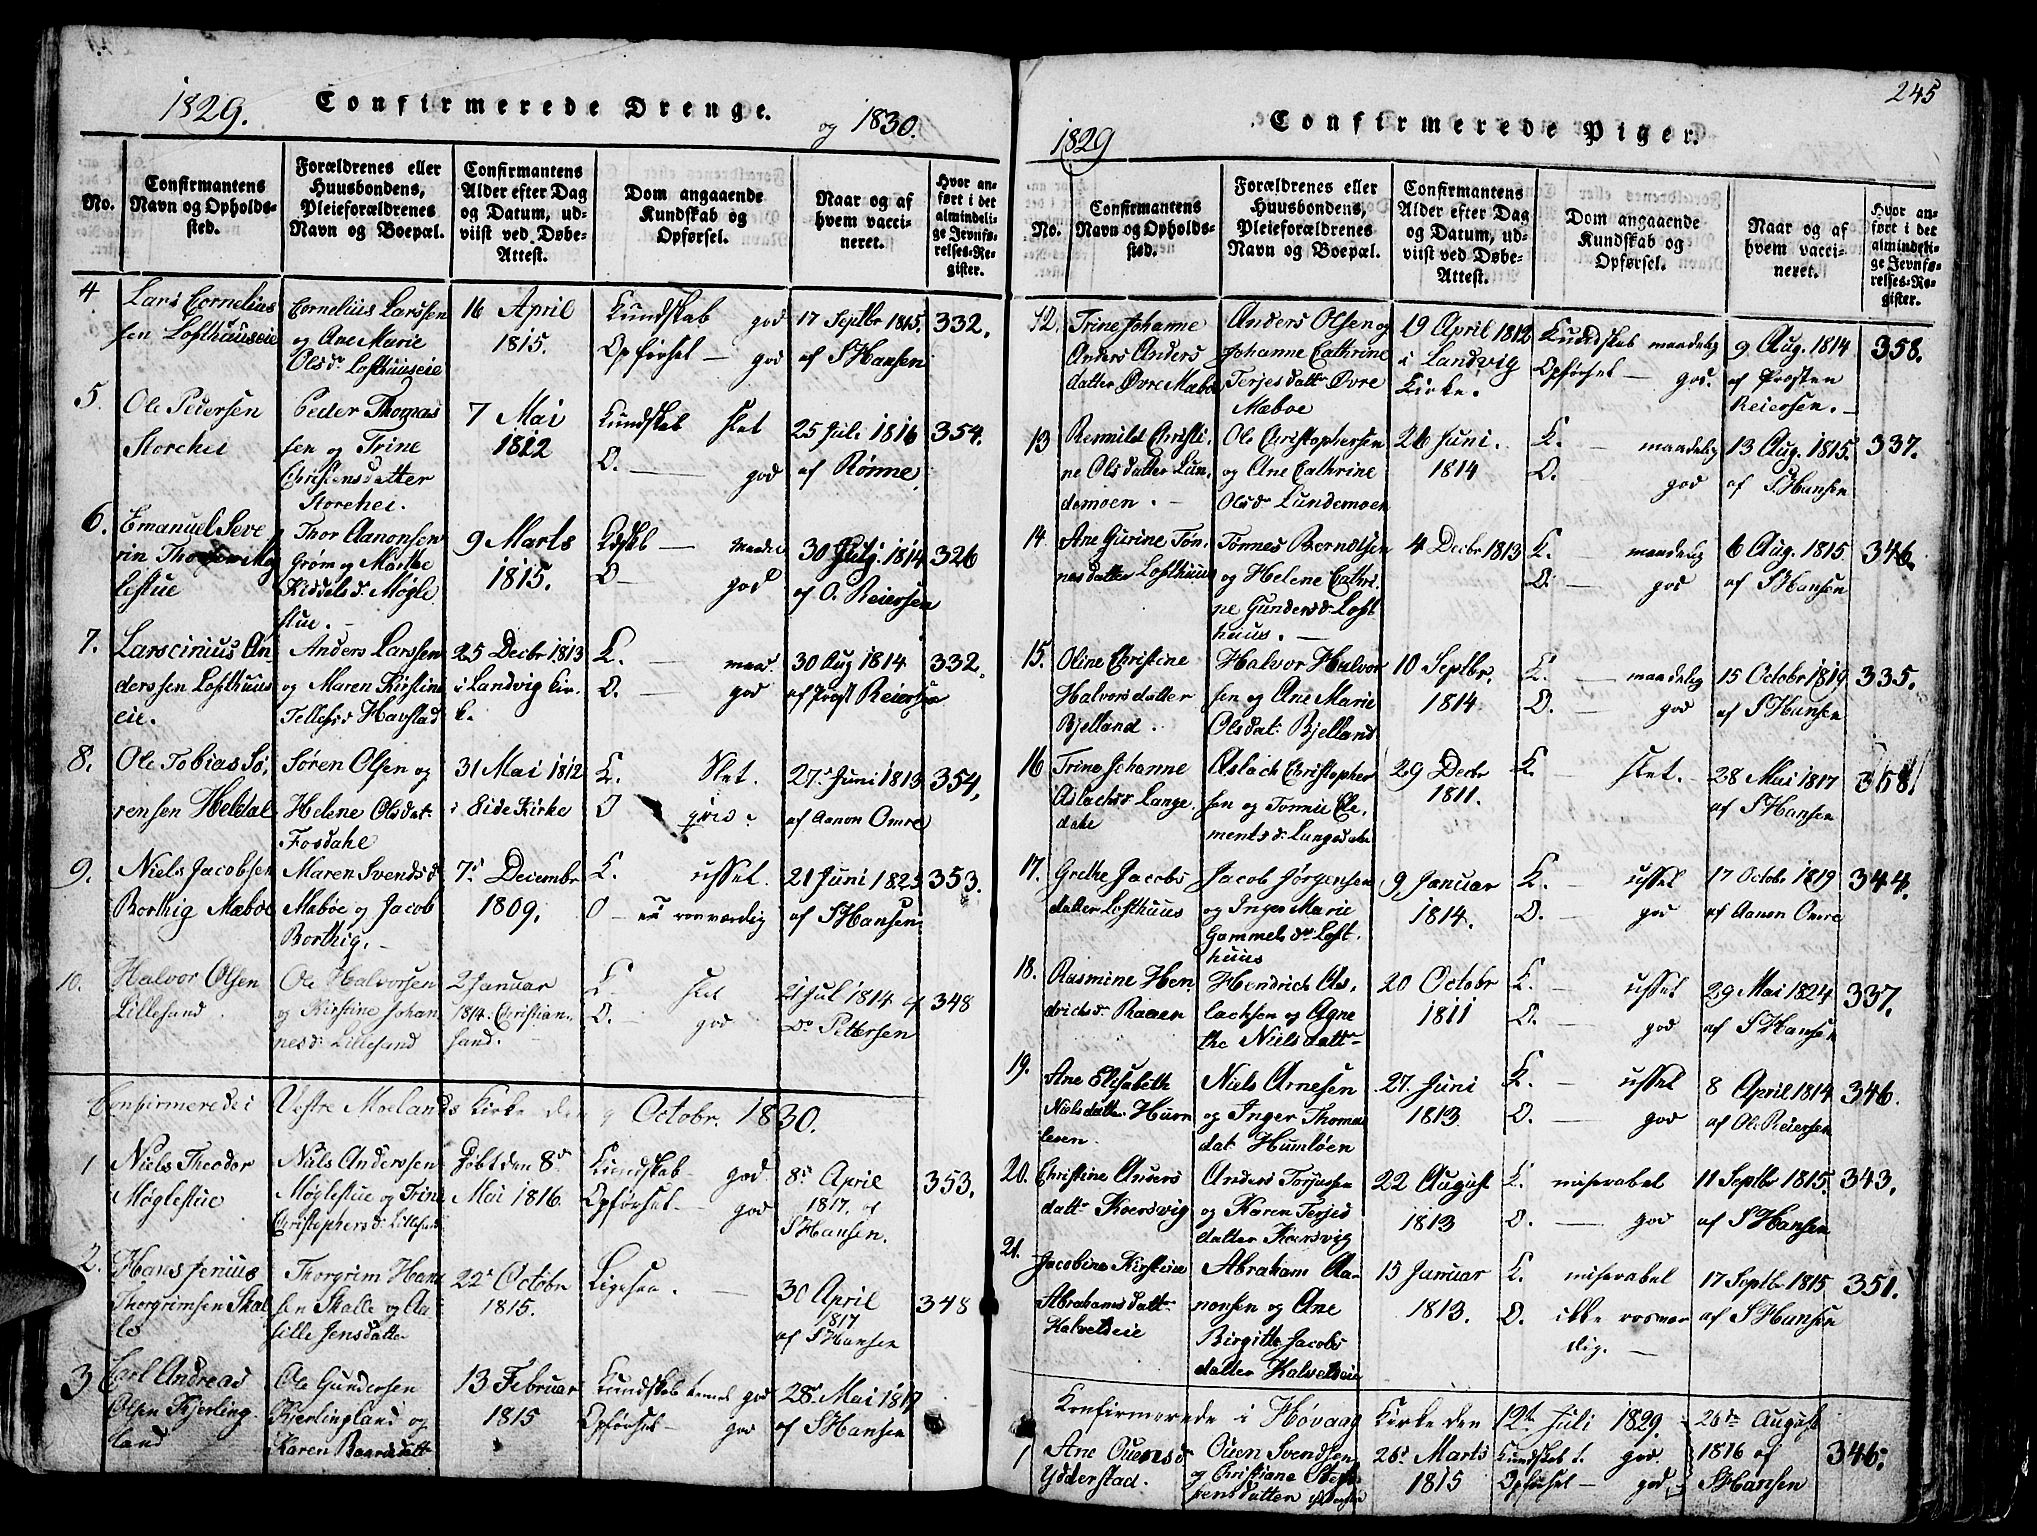 1829. Confirmerede Drenge. og 1830.
No.
Confirmantens
Navn og Opholds-
sted.
Forældrenes eller
Huusbondens,
Pleieforældrenes
Navn og Boepæl.
Confirmantens
Alder efter Dag
og Datum, ud-
viist ved Døbe-
Attest.
Dom angaaende
Kundskab og
Opførsel.
Naar og af
hvem vacci-
neret.
Hvor an-
ført i det
almindeli-
ge Jevnfø-
relses-Re-
gister.
4.
Lars Cornelius
sen Lofthuuseie
Cornelius Larssen
og Ane Marie
Olsdr Lofthuuseie
16 April
1815.
Kundskab god
Opførsel — god
17 Septbr 1815.
af S Hansen
332.
5.
Ole Pedersen
Storehei
Peder Thomas
sen og Trine
Christensdatter
Storehei.
7 Mai
1812
Kundskab slet
O. — god
25 Juli 1816
af Rønne.
354.
6.
Emanuel Seve
rin Thorsen Møg
lestue
Thor Aanonsen
Grøm og Marthe
Kiddelsdr Møgle
stue. —
9 Marts
1815.
Kdskb — maadel
O — god
30 Julj. 1814
af O. Reiersen
326
7.
Larscinius An-
derssen Lofthuus
eie.
Anders Larssen
og Maren Kirstine
Tellefsdr Havstad
25 Decbr 1813
i Landvig Kir-
k.
K. — maad
O. — god
30 Aug 1814
af Prost Reiersen
332.
8.
Ole Tobias Sø,
rensen Heldal
Søren Olsen og
Helene Olsdat:
Fosdahl
31 Mai 1812
i Eide Kirke
K. Slet.
O
27. Juni 1813
af Aanon Omre
354.
9.
Niels Jacobsen
Borthig Mæbøe
Maren Svendsd
Mæbøe og Jacob
Borthig.
7. Decembr
1809.
K. usset.
O — roesværdig
21 Juni 1825
af S Hansen
353.
10.
Halvor Olsen
Lillesand
Ole Halvorsen
og Kirstine Johan
nesdr Lillesand
2 Januar
1814. Christian-
sand.
K. slet
O. god
21 Jul 1814 af
Dr Pettersen
348
Confirmerede i Vestre Moelands Kirke den 9 Octobr. 1830.
1
Niels Theodor
Møglestue
Niels Anderssen
Møglestue og Trine
Christophersdr Lillesand
Døbt den 8de
Mai 1816.
Kundskab — god
Opførsel — god
8de April
1817. af
S Hansen.
353.
2.
Hans Jenius
Thorgrimsen Skal
le
Thorgrim Hans
sen Skalle og Aa
sille Jensdatter
22de Octobr
1815.
Ligesaa. —
30 April
1817
af S Hansen
348
3
Carl Andreas
Olsen Kjerling
land
Ole Gundersen
Kjerlingland og
Karen Baardsdatt
13 Februar
1815
Kundskab temel god
Opførsel — god
28de Mai 1817
af S Hansen
245
1829 Confirmerede Piger.
No.
Confirmantens
Navn og Opholds-
sted.
Forældrenes eller
Huusbondens,
Pleieforældrenes
Navn og Boepæl.
Confirmantens
Alder efter Dag
og Datum, ud-
viist ved Døbe-
Attest.
Dom angaaende
Kundskab og
Opførsel.
Naar og af
hvem vacci-
neret.
Hvor an-
ført i det
almindeli-
ge Jevnfø-
relses-Re-
gister.
12.
Trine Johanne
Anders Anders
datter Øvre Mæbøe
Anders Olsen og
Johanne Cathrine
Terjesdatr Øvre
Mæbøe
19 April 1812
i Landvig
Kirke.
Kundskab maadelig
Opførsel — god.
9 Aug. 1814
af Prosten
Reiersen. —
358.
13
Rennild Christi-
ne Olsdatter Lun-
demoen. —
Ole Christophersen
og Ane Cathrine
Olsdr Lundemoen
26 Juni.
1814
K. — maadelig
O. — god
13 Aug. 1815.
af S. Hansen
337.
14
Ane Gurine Tøn-
nesdatter Lofthuus
Tønnes Berndtsen
og Helene Cathri-
ne Gundersdr Loft
huus. —
4 Decbr 1813
K. — maadelig
O. — god
6 Aug. 1815
af S Hansen
346.
15.
Oline Christine
Halvorsdatter
Bjelland.
Halvor Halvor
sen og Ane Marie
Olsdat: Bjelland
10 Septbr.
1814.
K. — maadelig
O. — god
15 Octobr 1819
af S Hansen
335.
16
Trine Johanne
Aslachsdr Lange
dahl
Aslach Christopher
sen og Tomine Cle
mentsdr Langedahl
29 Decbr
1811.
K. slet.
28 Mai 1817
af S Hansen
17.
Grethe Jacobs
datter Lofthuus
Jacob Jørgensen
og Inger Marie
Gammelsdr Loft
huus
9 Januar
1814.
K. — usset
O. — god
17 Octobr 1819
af Aanon Omre
344.
18.
Rasmine Hen
drichsdr Raaen
Hendrich As,
lachsen og Agne
the Nielsdatr
20 Octobr
1811
K. — usset
O. — god
29 Mai 1824
af S Hansen
337.
19.
Ane Elisabeth
Nielsdatter Hum
løen.
Niels Arnesen
og Inger Thomas
dat Humløen
27. Juni
1813
K. — usset
O. — god
8 April 1814
af Ole Reiersen
346.
20.
Christine Anders
datr Koersvig
Anders Torjussen
og Karen Terjes
datter Koersvig
22 August
1813
K. miserabel
O. — god
11 Septbr 1815.
af S Hansen
343.
21.
Jacobine Kirstine
Abrahamsdatr
Kalvehseie
Abraham Aa-
nonsen og Ane
Birgitte Jacobs
datter Kalvehseie
15 Januar
1813.
K. miserabel
O. ikke rosvær
dig. —
17 Septbr 1815
af S Hansen
351.
Konfirmerede i Høvaag Kirke den 12te Juli 1829.
1
Ane Ouensdr
Ydderstad.
Ouen Svendsen
og Christiane
26de Marts
1815
Kundskab t. god.
Opførsel — god
26de August
1816 af
S Hansen
346.